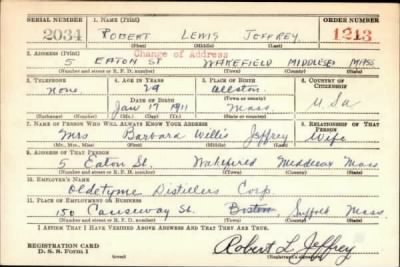 SERIAL NUMBER 1. NAME (Print) ORDER NUMBER
2034 ROBERT LEWIS JEFFREY 1213
(First) (Middle) (Last)
2. ADDRESS (Print) Change of Address
5 EATON ST WAKEFIELD MIDDLESEX MASS
(Number and street or R. F. D. number) (Town) (County) (State)
3. TELEPHONE 4. AGE IN YEARS 5. PLACE OF BIRTH 6. COUNTRY OF CITIZENSHIP
None. 29 Allston
DATE OF BIRTH
Jan 17 1911 Mass. U.Sa
(Exchange) (Number) (Mo.) (Day) (Yr.) (State or country)
7. NAME OF PERSON WHO WILL ALWAYS KNOW YOUR ADDRESS 8. RELATIONSHIP OF THAT PERSON
Mrs Barbara Willis Jeffrey Wife
(Mr., Mrs., Miss) (First) (Middle) (Last)
9. ADDRESS OF THAT PERSON
5 Eaton St. Wakefield Middlesex Mass
(Number and street or R. F. D. number) (Town) (County) (State)
10. EMPLOYER'S NAME
Oldetyme Distillers Corp.
11. PLACE OF EMPLOYMENT OR BUSINESS
150 Causeway St. Boston, Suffolk Mass
(Number and street or R. F. D. number) (Town) (County) (State)
I AFFIRM THAT I HAVE VERIFIED ABOVE ANSWERS AND THAT THEY ARE TRUE.
REGISTRATION CARD
D. S. S. Form 1
Robert L. Jeffrey
(Registrant's signature)